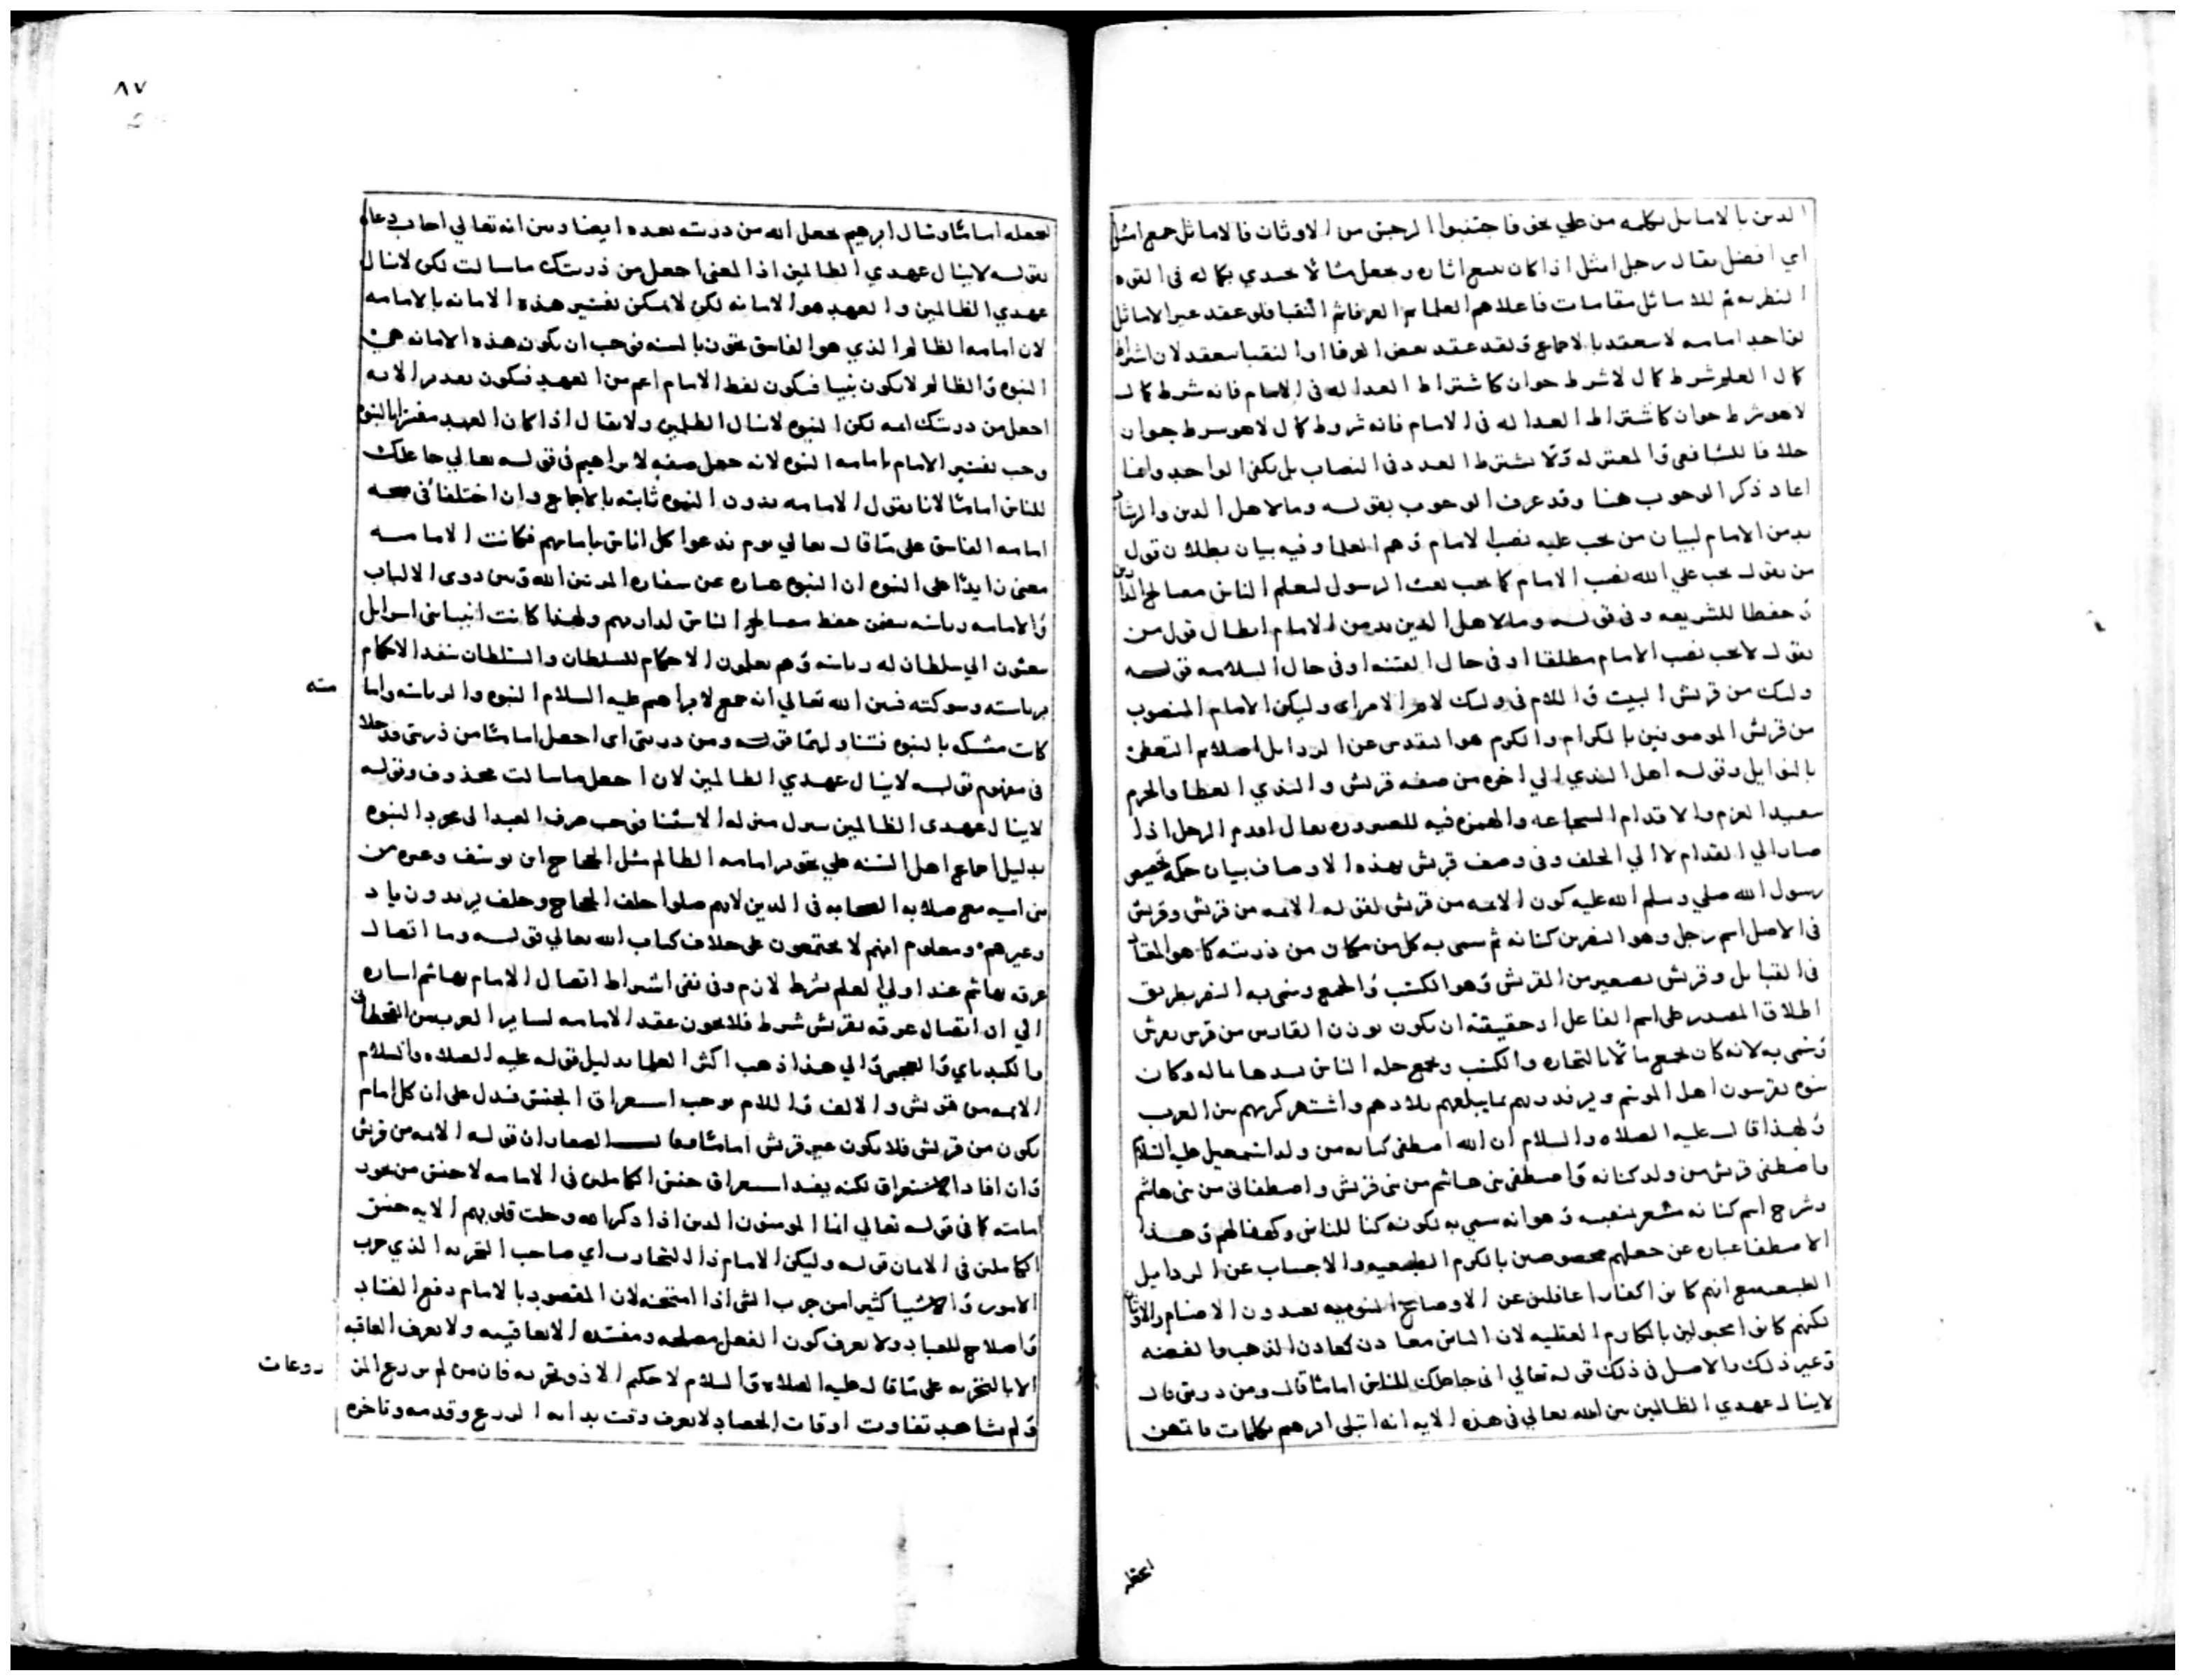 الدين بالاماثل بكلمه من علي نحو فاجتنبوا الرجس من الاوثان فالاماثل جمع امثل
اي افضل يقال رجل امثل اذا كان يتبع اثاره ويجعل مثالا يحتدي بكماله في القوه
النظريه ثم للاماثل مقامات فاعلاهم العلما ثم العرفا ثم النقبا فلو عقد غير الاماثل
لواحد امامه لا ينعقد بالاجماع ولو عقد بعض العرفا او النقبا ينعقد لان اشتراط
كمال العلم شرط كمال لا شرط جواز كاشتراط العداله في الامام فانه شرط كمال
لا هو شرط جواز كاشتراط العداله في الامام فانه شروط كمال لا هو شرط جواز
خلافا للشافعي والمعتزله ولا يشترط العدد في النصاب بل يكفي الواحد وانما
اعاد ذكر الوجوب هنا وقد عرف الوجوب بقوله وما لاهل الدين والرشاد
بد من الامام لبيان من يجب عليه نصب الامام وهم العلما وفيه بيان بطلان قول
من يقول يجب علي الله نصب الامام كما يجب بعث الرسول ليعلم الناس مصالح الدارين
وحفظا للشريعه وفي قوله وما لاهل الدين بد من الامام ابطال قول من
يقول لا يجب نصب الامام مطلقا او في حال الفتنه او في حال السلامه قوله
وليك من قريش البيت واللام في وليك لام الامر اي وليكن الامام المنصوب
من قريش الموصوفين بالكرام والكرم هو التقدس عن الرذايل اصلا ثم التحلي
بالفوايل وقوله اهل الندي الي اخره من صفه قريش والندي العطا والحزم
سعيد العزم والاقدام الشجاعه والهمزه فيه للصيروره يقال اقدم الرجل اذا
صار الي القدام لا الي الخلف وفي وصف قريش بهذه الاوصاف بيان حكمه تخصيص
رسول الله صلي وسلم الله عليه كون الايمه من قريش لقوله الايمه من قريش وقريش
في الاصل اسم رجل وهو النضر بن كنانه ثم سمي به كل من كان من ذريته كما هو المعتاد
في القبايل وقريش تصغير من القرش وهو الكسب والجمع وسمي به النضر بطريق
اطلاق المصدر علي اسم الفاعل او حقيقته ان يكون بوزن القادس من قرس يقرش
وسمي به لانه كان يجمع مالا بالتجاره والكسب ويجمع خله الناس يسدها بماله وكان
بنوه يقرشون اهل الموسم ويرفدونهم بما يبلغهم بلادهم واشتهر كرمهم من العرب
ولهذا قال عليه الصلاه والسلام ان الله اصطفي كنانه من ولد اسمعيل عليه السلام
واصطفي قريش من ولد كنانه واصطفي بني هاشم من بني قريش واصطفاني من بني هاشم
وشرح اسم كنانه مشعر بنفسه وهو انه سمي به لكونه كنا للناس وكهفا لهم وهذا
الاصطفا عباره عن جعلهم مخصوصين بالكرم الطبيعيه والاجتناب عن الرذايل
الطبيعيه مع انهم كانوا كفارا غافلين عن الاوضاع النبويه يعبدون الاصنام والاوثان
لكنهم كانوا مجبولين بالمكارم العقليه لان الناس معادن كمعادن الذهب والفضه
وغير ذلك والاصل في ذلك قوله تعالي اني جاعلك للناس اماما قال ومن ذريتي قال
لا ينال عهدي الظالمين بين الله تعالي في هذه الايه انه ابتلي ابرهيم بكلمات فاتمهن
٨٧
لجعله اماما وسال ابرهيم بجعل الله من ذريته بعده ايضا وبين انه تعالي اجاب دعاه
بقوله لا ينال عهدي الظالمين اذ المعني اجعل من ذريتك ما سالت لكن لا ينال
عهدي الظالمين والعهد هو الامانه لكن لا يمكن تفسير هذه الامانه بالامامه
لان امامه الظالم الذي هو الفاسق يجوز بالسنه فوجب ان يكون هذه الامانه هي
النبوه والظالم لا يكون نبيا فيكون لفظ الامام اعم من العهد فيكون تقدير الايه
اجعل من ذريتك ايمه لكن النبوه لا ينال الظلمين ولا يقال اذا كان العهد مفسرا بالنبوه
وجب تفسير الامام بامامه النبوه لانه جعل صفه لابراهيم في قوله تعالي جاعلك
للناس اماما لانا نقول الامامه بدون النبوه ثابته بالاجماع وان اختلفا في صحه
امامه الفاسق علي ما قال تعالي يوم ندعوا كل اناس بامامهم فكانت الامامه
معني زايدا علي النبوه ان النبوه عباره عن سفاره المر بين الله وبين ذوي الالباب
والامامه رياسه يعني حفظ مصالح الناس لداريهم ولهذا كانت انبيا بني اسرايل
يبعثون الي سلطان له رياسه وهم يعلمون الاحكام للسلطان والسلطان ينفذ الاحكام
برياسته وشوكته فبين الله تعالي انه جمع لابراهيم عليه السلام النبوه والرياسه واما
مته
كانت مشركه بالنبوه تتناولهما قوله ومن ذريتي اي اجعل اماما من ذريتي وقد خلا
في مفهوم قوله لا ينال عهدي الظالمين لان اجعل ما سالت محذوف وقوله
لا ينال عهدي الظالمين نزل منزله الاستثنا فوجب صرف العهد الي مجرد النبوه
بدليل اجماع اهل السنه علي تجويز امامه الظالم مثل الحجاج ابن يوسف وغيره من
بني اميه مع صلابه الصحابه في الدين لانهم صلوا خلف الحجاج وخلف يزيد ون ياد
وغيرهم ومعلوم انهم لا يجتمعون علي خلاف كتاب الله تعالي قوله وما اتصال
عرقه بهاشم عند اولي العلم شرط لازم وفي نفي اشتراط اتصال الامام بهاشم اشاره
الي ان اتصال عرقه بقريش شرط فلا يجوز عقد الامامه لساير العرب من القحطاني
والكيد باي والعجمي والي هذا ذهب اكثر العلما بدليل قوله عليه الصلاه والسلام
الايمه من قريش والالف واللام يوجب استغراق الجنس فدل علي ان كل امام
يكون من قريش فلا يكون غير قريش اماما وقال الصفار ان قوله الايمه من قريش
وان افاد الاستغراق لكنه يفيد استغراق جنس الكاملين في الامامه لا جنس من يجوز
امامته كما في قوله تعالي انما المومنون الذين اذا ذكر الله وجلت قلوبهم الايه جنس
الكاملين في الايمان قوله وليكن الامام ذا التجارب اي صاحب التجربه الذي جرب
الامور والاشيا كثيرا من جرب الشي اذا امتحنه لان المقصود بالامام دفع الفساد
واصلاح للعباد ولا يعرف كون الفعل مصلحه ومفسده الا بعاقبته ولا يعرف العاقبه
الا بالتجربه علي ما قال عليه الصلاه والسلام لا حكيم الا ذو تجربه فان من لم يزرع المز
روعات
ولم يشاهد تفاوت اوقات الحصاد لا يعرف وقت بدايه الزرع وقدمه وتاخره